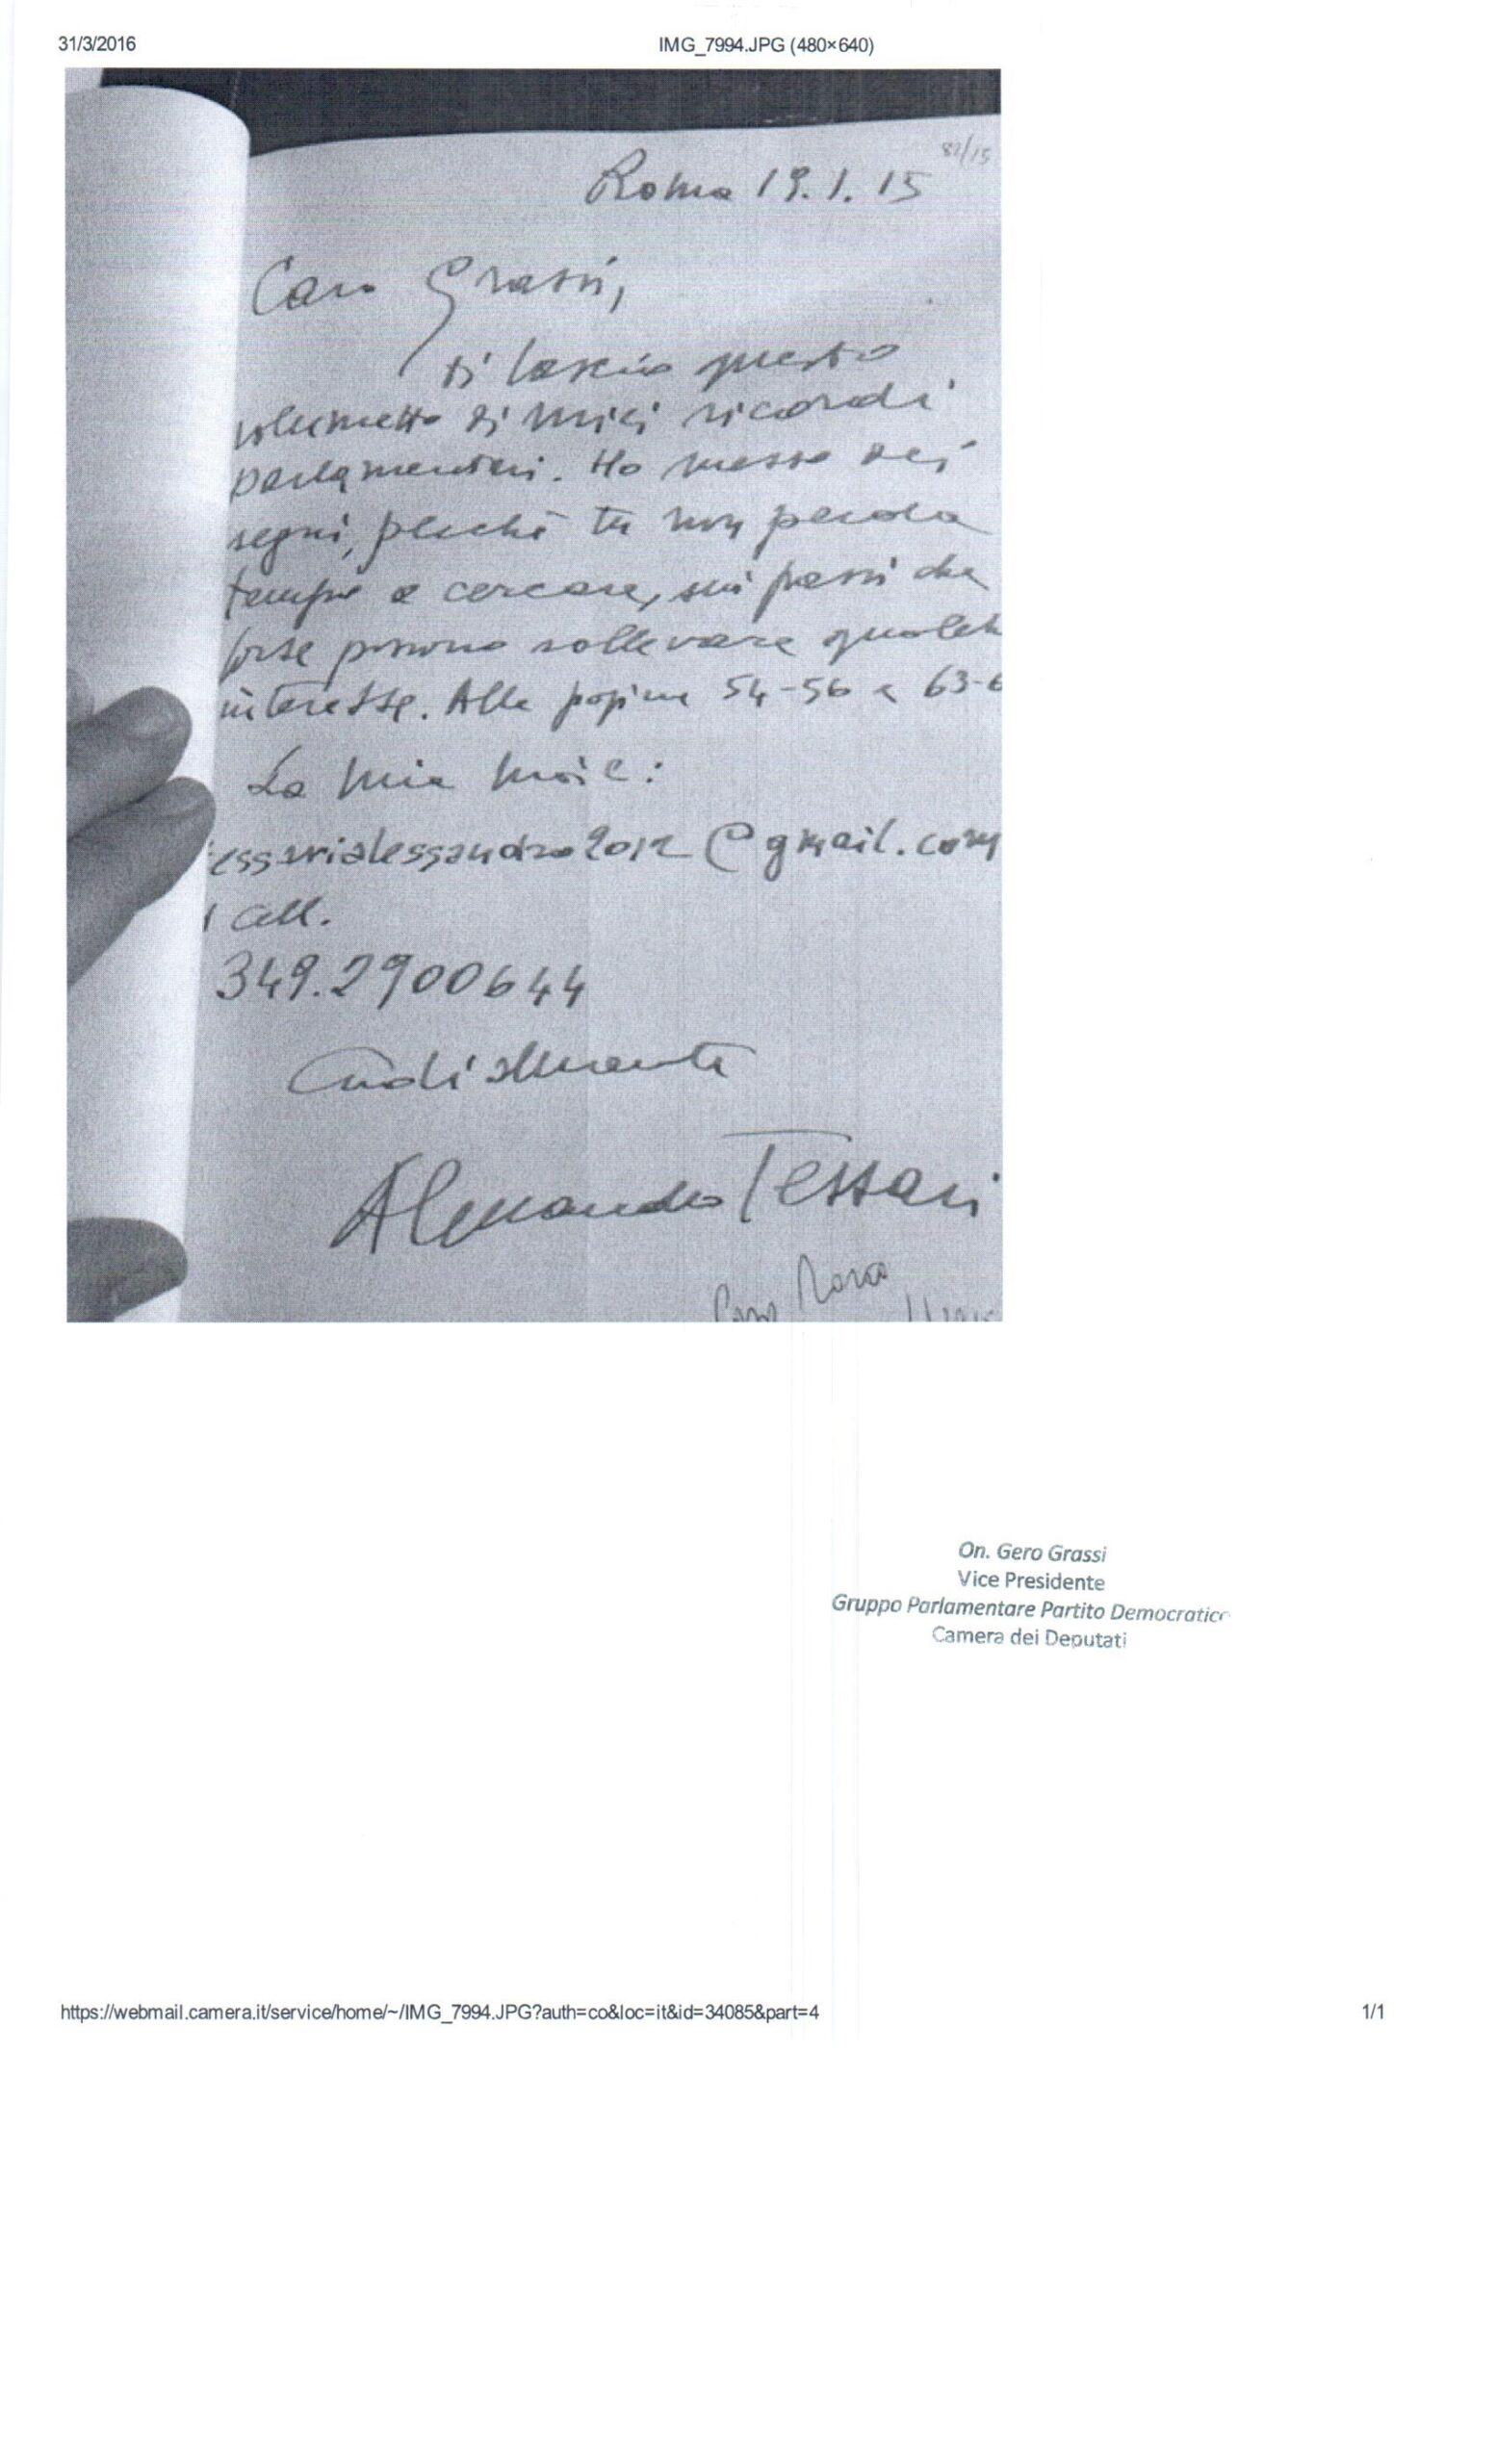 31/3/2016 IMG_7994.JPG (480×640)
82/15
Roma 19.1.15
Caro Grassi,
ti lascio questo
volumetto di miei ricordi
parlamentari. Ho messo dei
segni, perché tu non perda
tempo a cercare, sui passi che
forse possono sollevare qualch
interesse. Alle pagine 54-56 e 63-6
La mia mail:
essarialessandro2012@gmail.com
l cell.
349.2900644
Cordialmente
Alessandro Tessari
On. Gero Grassi
Vice Presidente
Gruppo Parlamentare Partito Democratico
Camera dei Deputati
https://webmail.camera.it/service/home/~/IMG_7994.JPG?auth=co&loc=it&id=34085&part=4 1/1